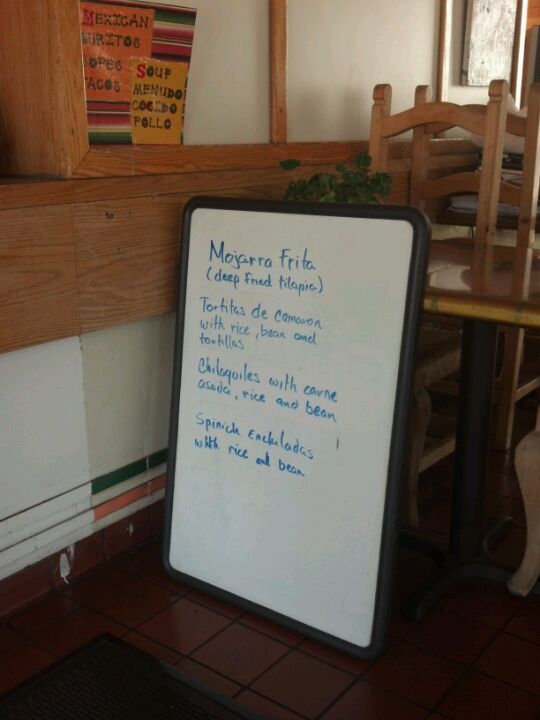 MEXICAN
BURITOS
SOPES
TACOS
SOUP
MENUDO
COCIDO
POLLO
Mojarra Frita
(deep fried tilapia)
Tortitas de Camaron
with rice, bean and
tortillas
Chilaquiles with carne
asada, rice and bean
Spinich Enchiladas
with rice and bean